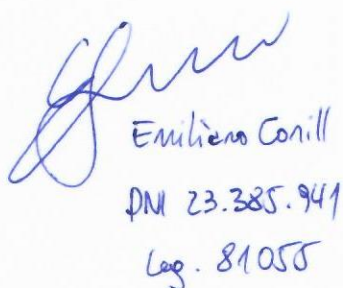 Emiliano Conill
DNI 23.385.941
Leg. 81055